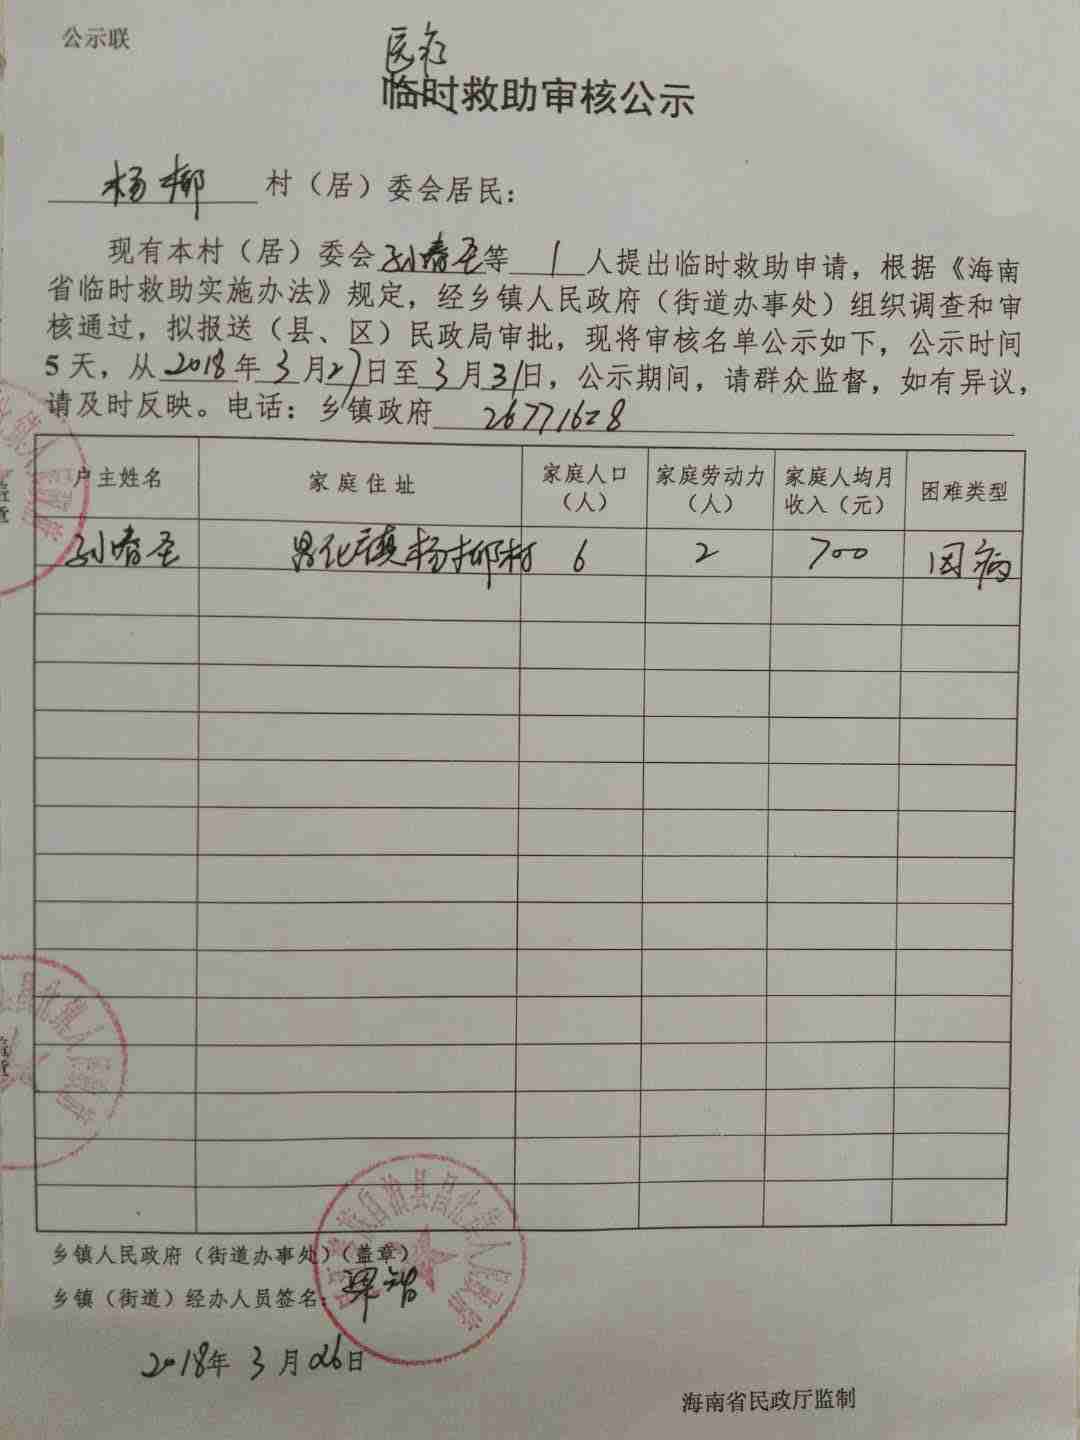 公示联
医疗
临时救助审核公示
杨柳 村（居）委会居民：
现有本村（居）委会孙春圣等 1 人提出临时救助申请，根据《海南
省临时救助实施办法》规定，经乡镇人民政府（街道办事处）组织调查和审
核通过，拟报送（县、区）民政局审批，现将审核名单公示如下，公示时间
5 天，从 2018 年 3 月 27 日至 3 月 31 日，公示期间，请群众监督，如有异议，
请及时反映。电话：乡镇政府 26771628
户主姓名 家庭住址 家庭人口（人） 家庭劳动力（人） 家庭人均月收入（元） 困难类型
孙春圣 昌化镇杨柳村 6 2 700 因病
乡镇人民政府（街道办事处）（盖章）
乡镇（街道）经办人员签名：
2018年 3 月 26 日
海南省民政厅监制